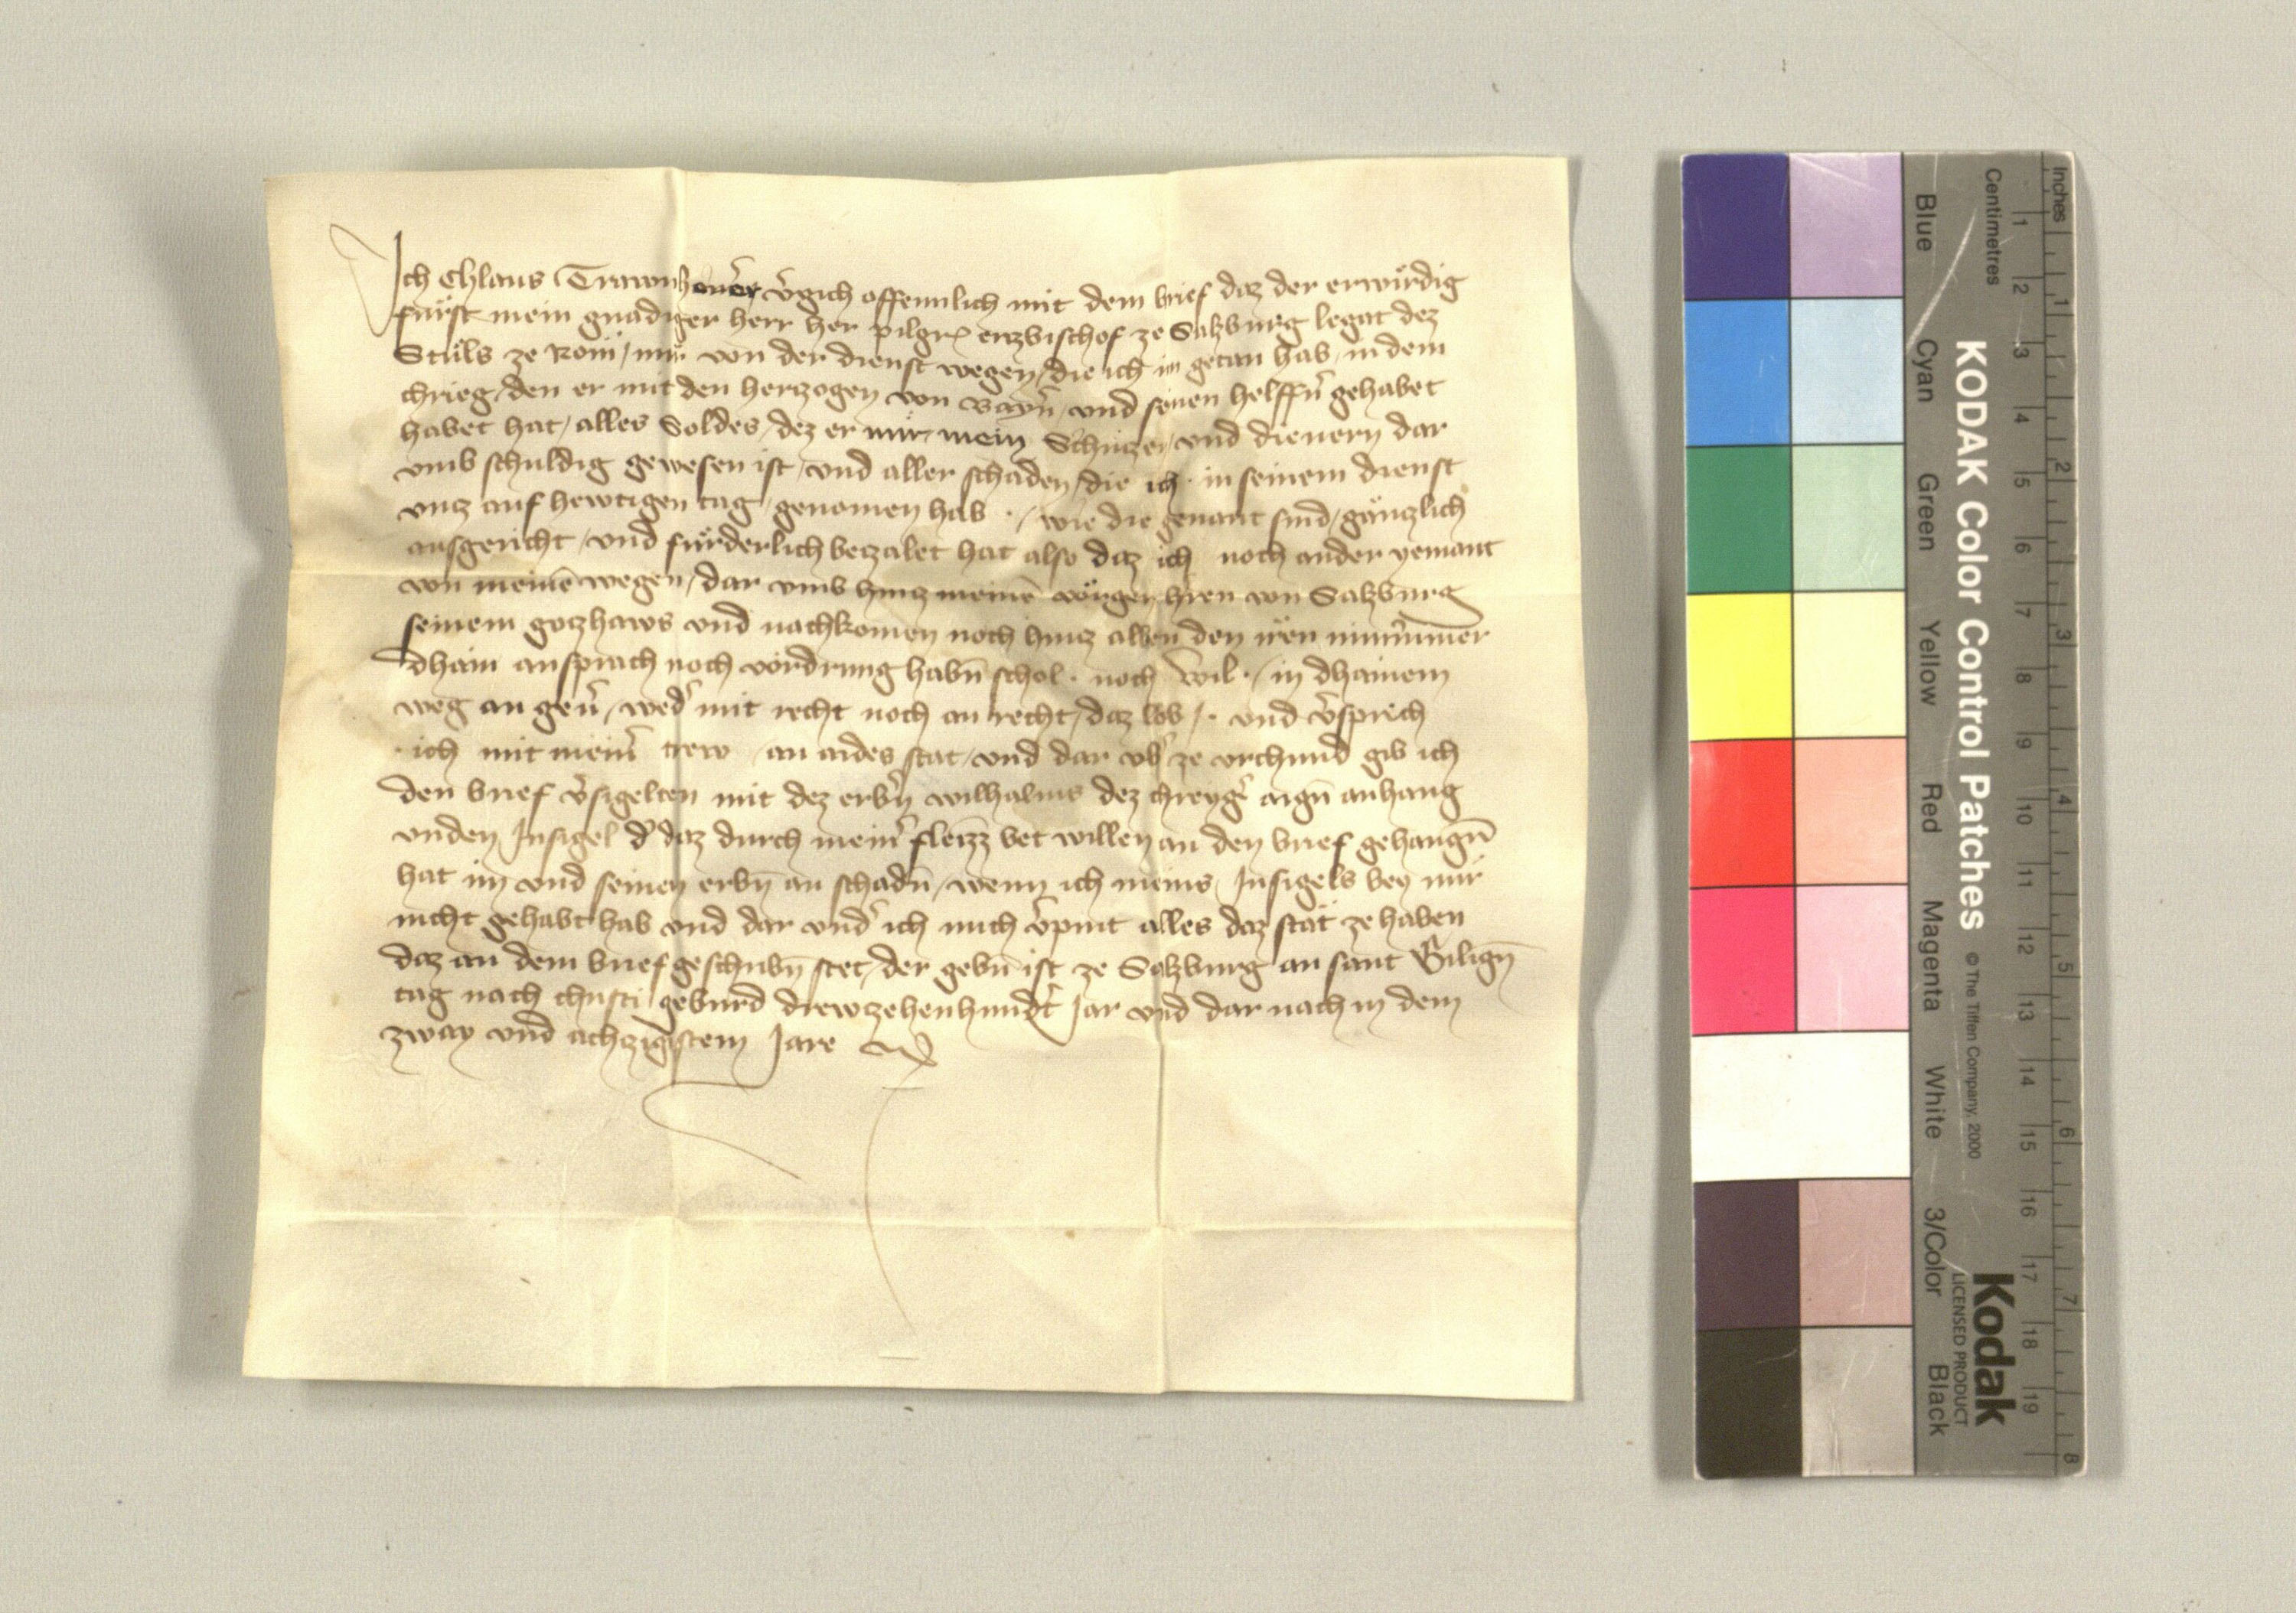 Ich Chlaus v̄gich offennlich mit dem brief daz der erwirdig
fürst mein gnädiger herr her pilgr̄ erzbischof ze Salzburg legat dez
Stuls ze Rom / mir von der dienst wegen / die ich im getan hab / in dem
chrieg / den er mit den herzogen von Bayrn̄ / und seinen helffn̄ gehabet
habet hat / alles Soldes / dez er mir mein Schüczen / und dienern dar
vmb schuldig gewesen ist / und aller schäden / die ich · in seinem dienst
vncz auf hewtigen tag / genomen hab · / wie die genant sind / gänczlich
ausgericht / vnd fürderlich beczalet hat also daz ich noch ander yemant
von meinē wegen / dar vmb hincz meinē hren von Salzburg
seinem goczhaws vnd nachkomen noch hincz allen den iren nimmer
dhain ansprach noch vordrung habn̄ schol · noch wil · / in dhainem
weg an geu̅ / wed̄ mit recht noch an recht / daz lob / · vnd v̄sprich
· ich mit mein̄ trew an aides stat / vnd dar vb̄ ze vrchund gib ich
den brief v̄sigelten mit dez erbn̄ wilhalms dez chreyḡ aign̄ anhang
vnden Insigel d̄ daz durch mein̄ fleizz bet willen an den brief gehangn̄
hat im vnd seinen erbn̄ an schadn̄ / wenn ich meins Insigels bey mir
nicht gehabt hab vnd dar vnd̄ ich mich v̄pint alles daz stät ze haben
daz an dem brief geschribn̄ stet / der gebn̄ ist ze Salzburg an sant Gilign̄
tag nach christi geburd drewzehenhundt̄ Jar vnd dar nach in dem
zway vnd achzigistem Jare
Inches
Centimetres
1 2 3 4 5 6 7 8 9 10 11 12 13 14 15 16 17 18 19
1 2 3 4 5 6 7 8
KODAK Color Control Patches © The Tiffen Company, 2000
Kodak
LICENSED PRODUCT
Blue Cyan Green Yellow Red Magenta White 3/Color Black